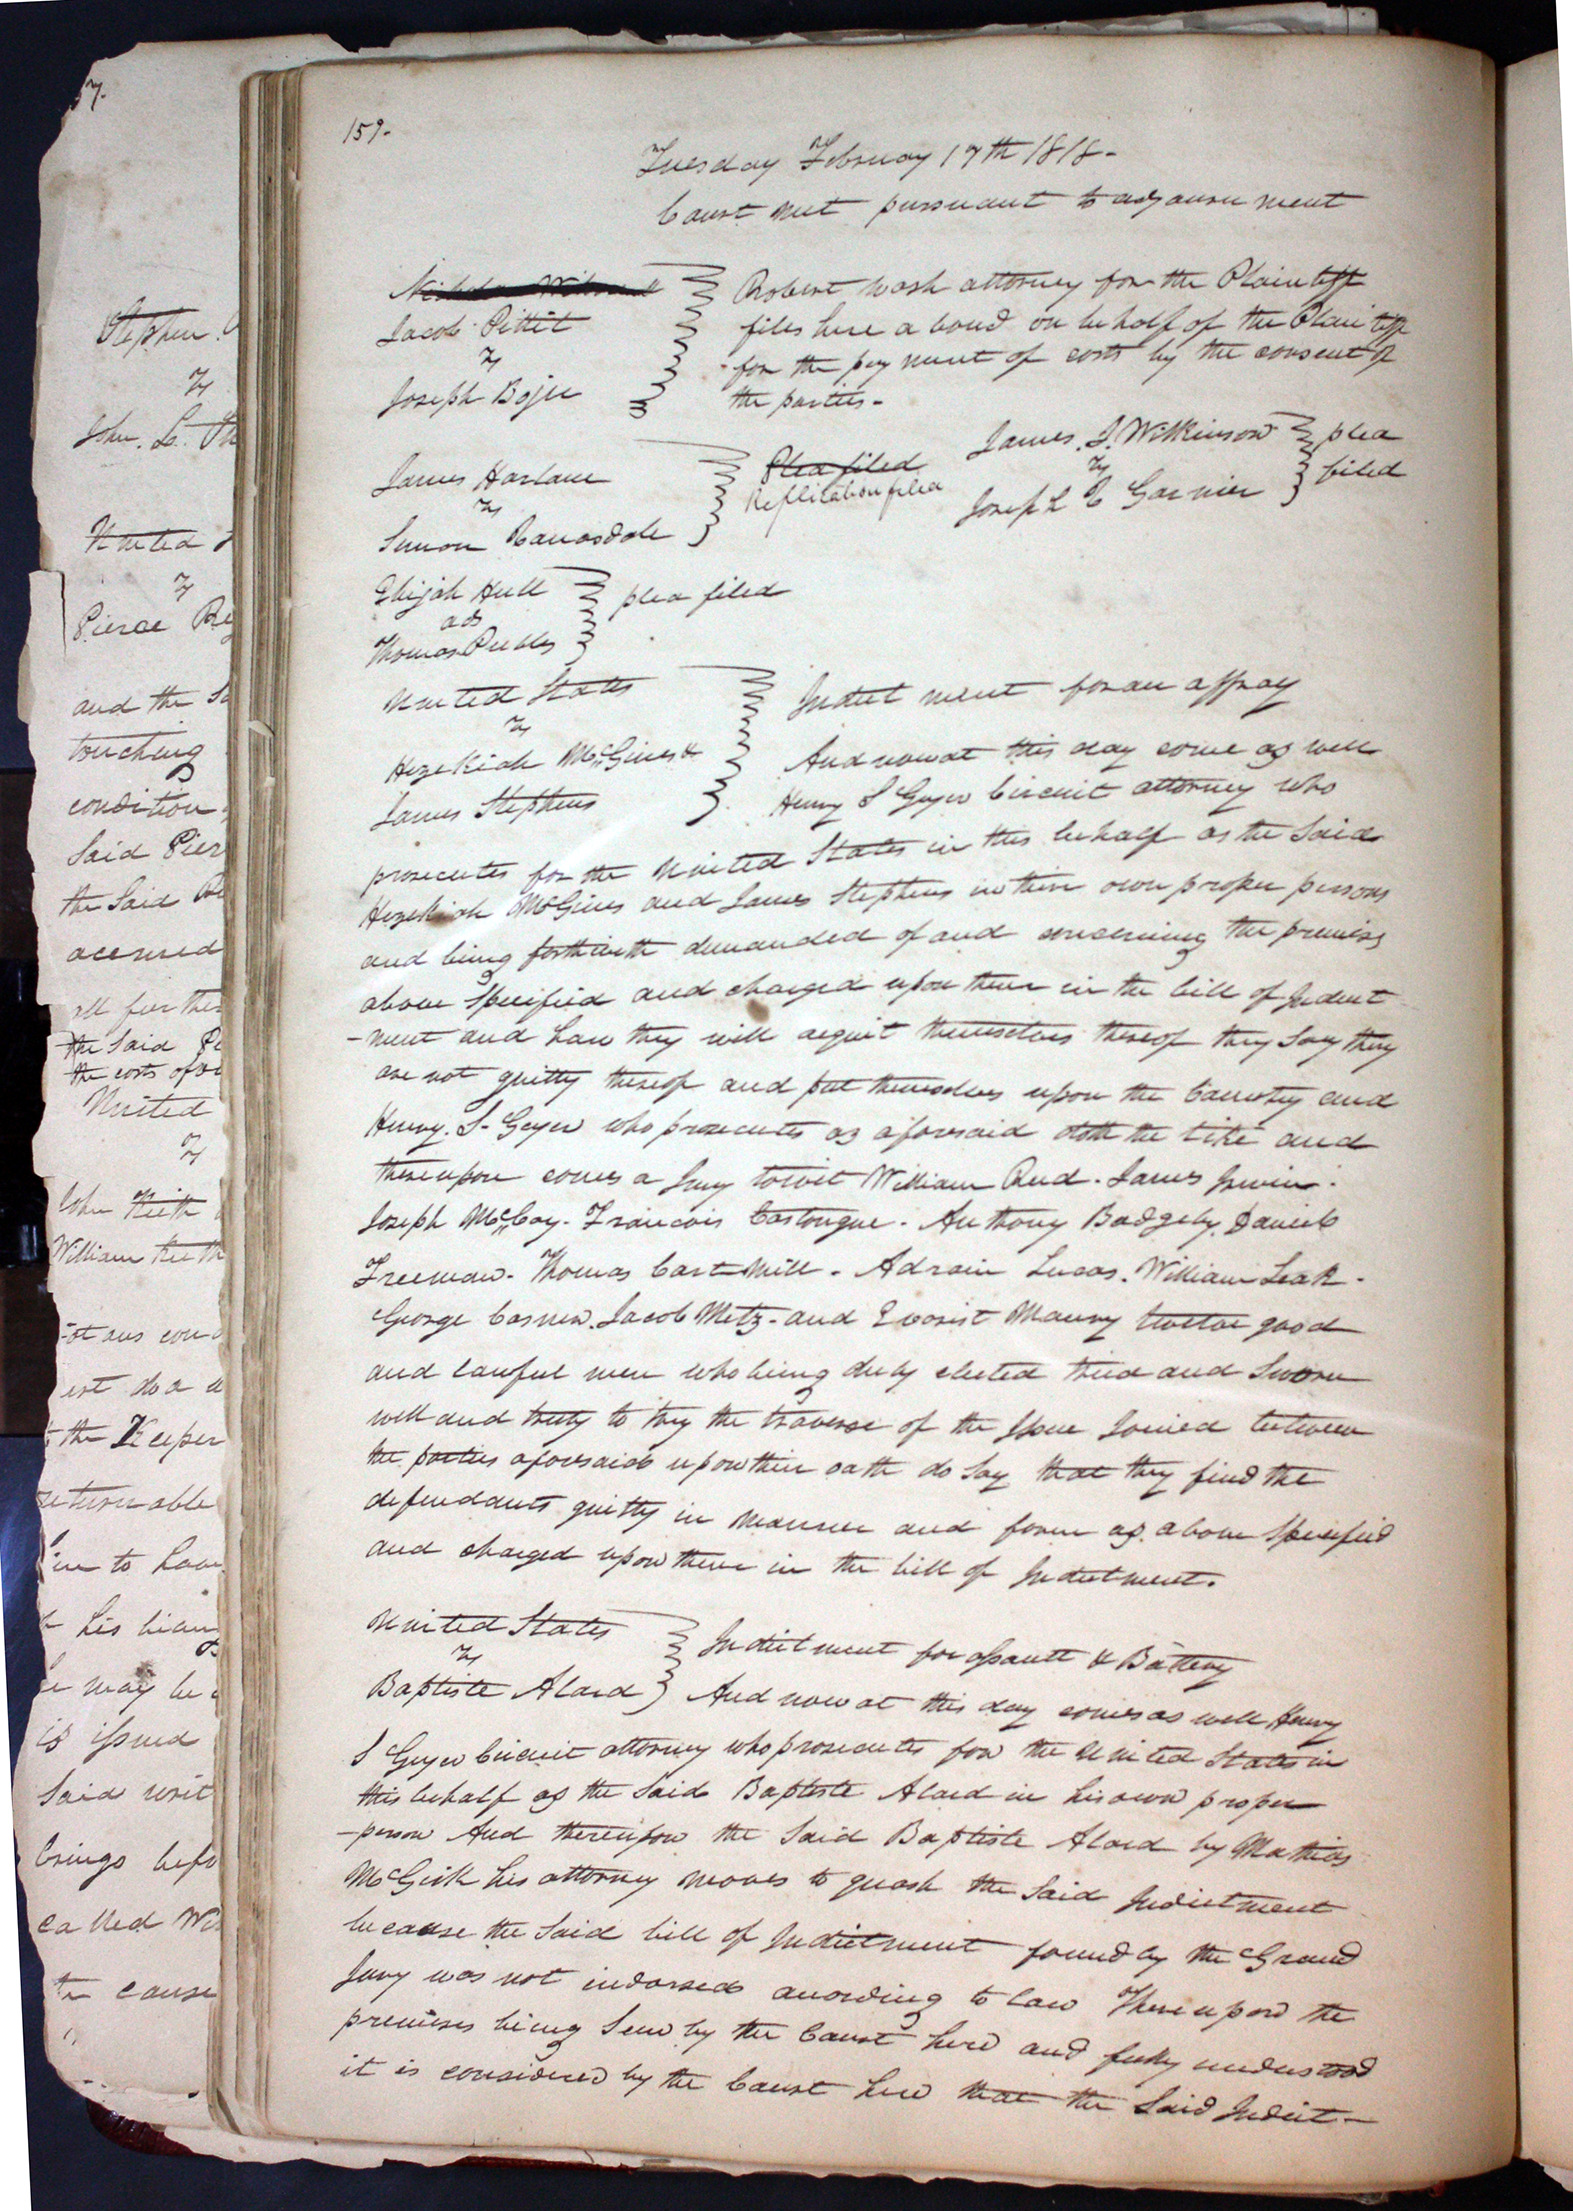 159.
Tuesday February 17th 1818-
Court met pursuant to adjournment
Jacob Pettit
vs
Joseph Bojie
Robert Wash attorney for the Plaintiff
files here a bond on behalf of the Plaintiff
for the payment of costs by the consent of
the parties-
James Harlane
vs
Simon Banasdole
Plea filed
Replication filed
James. J. Wilkinson
vs
Joseph C Garnier
plea
filed
Elijah Hull
ads
Thomas Peebles
plea filed
United States
vs
Hezekiah McGines &
James Stephens
Indictment for an affray
And now at this day come as well
Henry S Geyer Circuit attorney who
prosecutes for the United States in this behalf as the Said
Hezekiah McGines and James Stephens in their own proper persons
and being forthwith demanded of and concerning the premises
above Specified and charged upon them in the bill of Indict
-ment and how they will acquit themselves thereof they Say they
are not guilty thereof and put themselves upon the Country and
Henry. S. Geyer who prosecutes as aforesaid doth the like and
thereupon comes a Jury towit William Rud. James Irwin.
Joseph McCoy. Francois Castongue. Anthony Badgeley. Daniel
Freeman. Thomas Cartmill. Adrain Lucas. William Leak.
George Casner. Jacob Metz. and Evarist Maury twelve good
and lawful men who being duly elected tried and Sworn
well and truly to try the traverse of the Issue Joined between
the parties aforesaid upon their oath do Say that they find the
defendants guilty in manner and form as above Specified
and charged upon them in the bill of Indictment.
United States
vs
Baptiste Alard
Indictment for assault & Battery
And now at this day comes as well Henry
S Geyer Circuit attorney who prosecutes for the United States in
this behalf as the Said Baptiste Alard in his own proper
-person And thereupon the Said Baptiste Alard by Mathias
McGirk his attorney moves to quash the Said Indictment
because the Said bill of Indictment found by the Grand
Jury was not indorsed according to law Thereupon the
premises being Seen by the Court here and fully understood
it is considered by the Court here that the Said Indict-